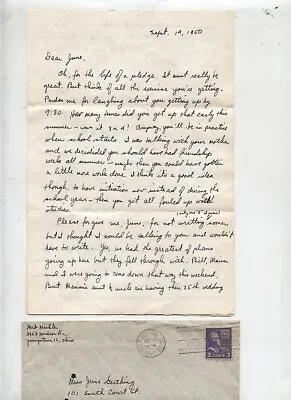 Sept. 14, 1950
Dear June,
Oh, for the life of a pledge. It must really be
great. But think of all the exercise you're getting.
Pardon me for laughing about you getting up by
7:30. How many times did you get up that early this
summer - was it 3 or 4? Anyway, you'll be in practice
when school starts. I was talking with your mother
and we decided you should have had friendship
weeks all summer - maybe then you could have gotten
a little more work done. I think it's a good idea
though, to have initiation now instead of during the
school year - then you get all fouled up with
studies.
Please forgive me, June, for not writing sooner
but I thought I would be talking to you and wouldn't
have to write. Yes, we had the greatest of plans
going up here but they fell through with. Bill, Marian
and I were going to come down that way this weekend.
But Marian's aunt & uncle are having their 25th wedding
Youngstown, Ohio
1950
3 CENTS 3
Miss June
101 South Court St.